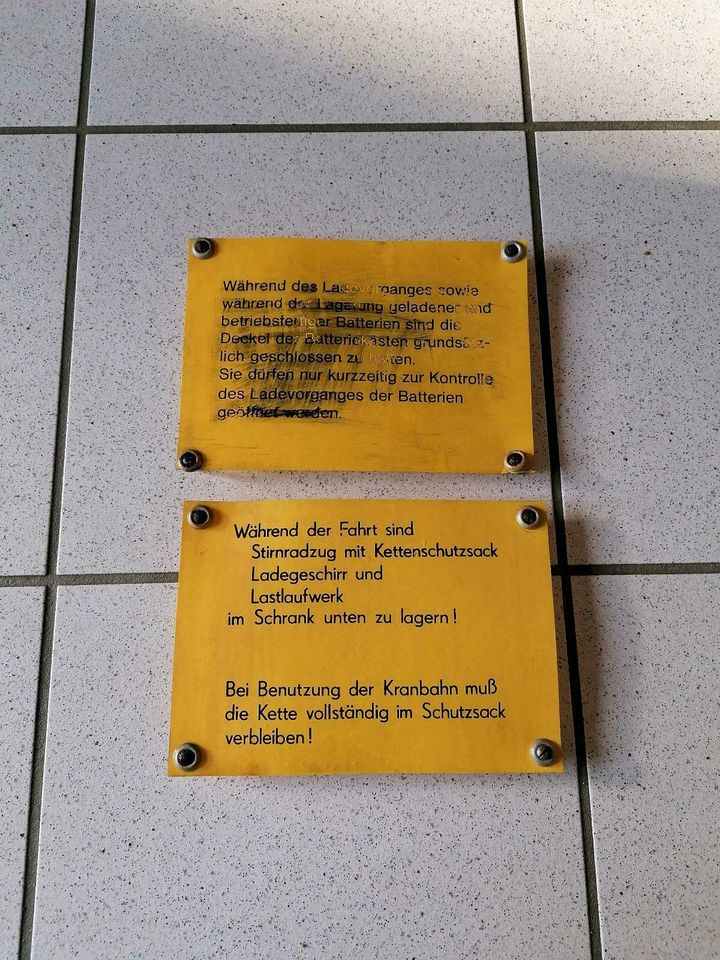 Während des Ladevorganges sowie
während der Lagerung geladener und
betriebsfertiger Batterien sind die
Deckel der Batteriekästen grundsätz-
lich geschlossen zu halten.
Sie dürfen nur kurzzeitig zur Kontrolle
des Ladevorganges der Batterien
geöffnet werden.
Während der Fahrt sind
Stirnradzug mit Kettenschutzsack
Ladegeschirr und
Lastlaufwerk
im Schrank unten zu lagern!
Bei Benutzung der Kranbahn muß
die Kette vollständig im Schutzsack
verbleiben!